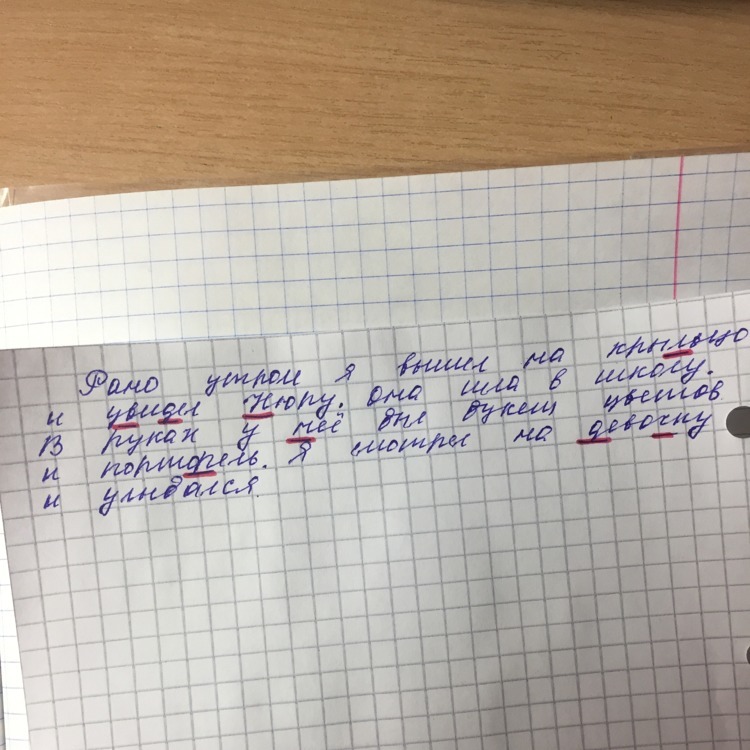 Рано утром я вышел на крыльцо
и увидел Нюру. Она шла в школу.
В руках у неё был букет цветов
и портфель. Я смотрел на девочку
и улыбался.